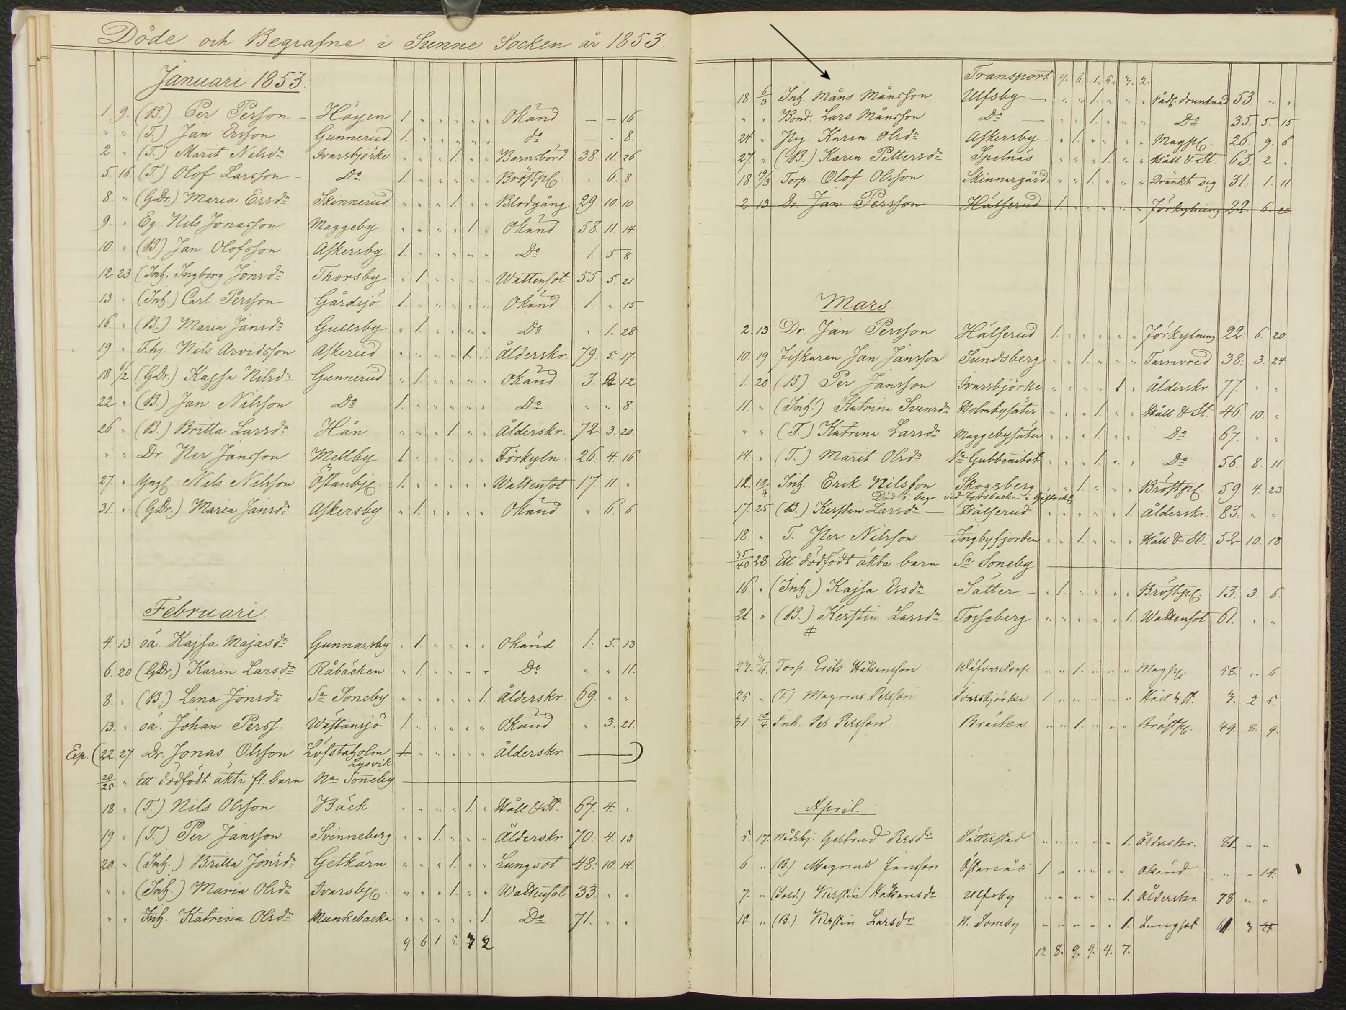 Döde och Begrafne i Sunne Socken år 1853
Januari 1853.
1 9 (B.) Per Persson - Höyen 1 Okänd - - 16
" " (T.) Jan Ersson Gunnerud 1 do " " 8
2 " (T.) Marit Nilsdr Ivarsbjörke 1 Barnsbörd 38 11 26
5 16 (T.) Olof Larsson - Do 1 " 6 8
8 " (GDr.) Maria Ersdr Skinnerud 1 Blodgång 29 10 10
9 " Eg. Nils Jonasson Maggeby 1 Okänd 58 11 14
10 " (B.) Jan Olofsson Askersby 1 Do 1 5 8
12 23 (Inh. Ingborg Jonsdr Thorsby 1 Wattensot 55 5 21
13 " (Inh.) Carl Persson - Gårdsjö 1 Okänd 1 " 15
16 " (B.) Maria Jansdr Gullsby 1 Do " 1 28
19 " Nils Arvidsson Askerud 1 Ålderskr. 79 5 17
18 (GDr.) Kajsa Nilsdr Gunnerud 1 Okänd 3 12
22 " (B.) Jan Nilsson Do 1 Do " " 8
26 " (B.) Britta Larsdr Hån 1 Ålderskr. 72 3 20
" " Dr Per Jansson Mellby 1 Förkyln. 26 4 16
27 " Nils Nilsson 1 Wattensot 17 11 "
31 " (GDr.) Maria Jansdr Askersby 1 Okänd " 6 6
Februari
4 13 oä. Kajsa Majasdr Gunnarsby 1 Okänd 1 5 13
6 20 (GDr.) Karin Larsdr Råbäcken 1 Do " " 11
8 " (B.) Lena Jonsdr Sa Soneby 1 Ålderskr. 69 " "
13 " oä. Johan Perss. Westansjö 1 Okänd " 3 21
Exp. (22 27 Dr. Jonas Olsson Löfstaholm Lysvik Ålderskr. )
20/25 " ett dödfödt äkta fl. barn Na Soneby
18 " (T.) Nils Olsson Bäck 1 Håll & St. 67 4 "
19 " (T.) Per Jansson Svenneberg 1 Ålderskr. 70 4 13
20 " (Inh.) Britta Jonsdr Getkärn 1 Lungsot 48 10 14
" " (Inh.) Maria Olsdr 1 Wattensot 33 " "
" " Inh. Katrina Olsdr Munkebacka 1 Do 71 " "
9 6 1 5 7 2
Transport 9 6 1 5 7 2
18 6/3 Inh. Måns Månsson Ulfsby - 1 drunknad 53 " "
" " Bond. Lars Månsson Do - 1 Do 35 5 15
24 " Pig Karin Olsdr Askersby 1 26 9 6
27 " (B) Karin Pettersdr Spelnäs 1 Håll & St 63 2 "
18 Torp. Olof Olsson Skinnargård 1 Dränkt sig 31 1 11
2 13 Dr. Jan Persson Hålserud 1 Förkylning 22 6 20
Mars.
2 13 Dr. Jan Persson Hålserud 1 Förkylning 22 6 20
10 19 Fiskaren Jan Jansson Sundsberg 1 Tarmvred 38 3 24
1 20 (B) Per Jansson Ivarsbjörke 1 Ålderskr. 77 " "
11 " (Inh.) Katrina Svensdr Holmbysäter 1 Håll & St. 46 10 "
" " (T.) Katrina Larsdr Maggebysäter 1 Do 67 " "
14 " (T.) Marit Olsdr 1 Do 56 8 11
12 Inh Erik Nilsson Skogsberg 1 59 4 23
17 25 (B.) Kerstin Larsdr - Hälserud 1 Ålderskr. 83 " "
18 " T. Per Nilsson Ingbyfjorden 1 Håll & St. 52 10 18
25/20 28 Ett dödfödt äkta barn Sa Soneby
16 " (Inh.) Kajsa Ersdr Säter - 1 13 3 5
21 " (B.) Kerstin Larsdr Tosseberg 1 Wattensot 61 " "
#
27 Torp. Erik Håkansson 1 58 " 6
25 " (T.) Magnus Persson Ivarsbjörke 1 Håll & St. 3 2 5
31 Inh. Per Persson 1 44 8 9
April.
5 17 Gertrud Persdr 1 Ålderskr. 81 " "
6 " (B.) Magnus Jansson 1 Okänd " " 14
7 " Kerstin Håkansdr Ulfsby 1 Ålderskr. 78 " "
10 " (B.) Kerstin Larsdr N. Somby 1 Lungsot 61
12 8 9 9 4 7